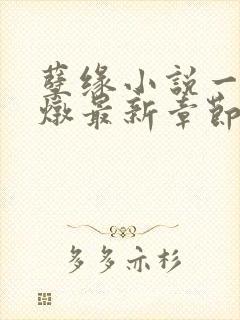 孽缘小说一
燉最新章节
多多亦杉